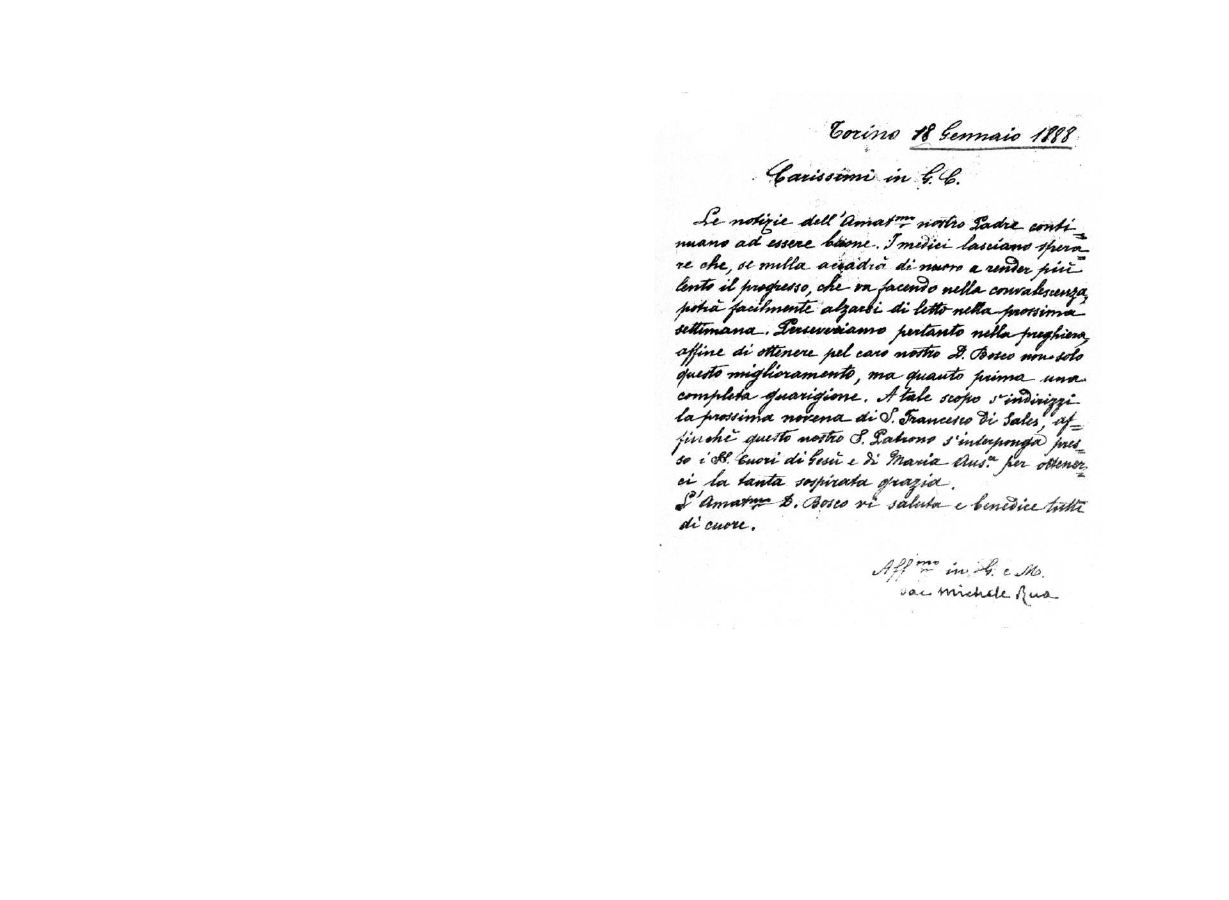 Torino 18 Gennaio 1888
Carissimi in G. C.
Le notizie dell'Amatmo nostro Padre conti=
nuano ad essere buone. I medici lasciano spera=
re che, se nulla accadrà di nuovo a render più
lento il progresso, che va facendo nella convalescenza,
potrà facilmente alzarsi di letto nella prossima
settimana. Perseveriamo pertanto nella preghiera,
affine di ottenere pel caro nostro D. Bosco non solo
questo miglioramento, ma quanto prima una
completa guarigione. A tale scopo s'indirizzi
la prossima novena di S. Francesco di Sales, af=
finchè questo nostro S. Patrono s'interponga pres=
so i SS. Cuori di Gesù e di Maria Aus.ce per ottener=
ci la tanta sospirata grazia.
L'Amatmo D. Bosco vi saluta e benedice tutti
di cuore.
Affmo in G. e M.
Sac Michele Rua